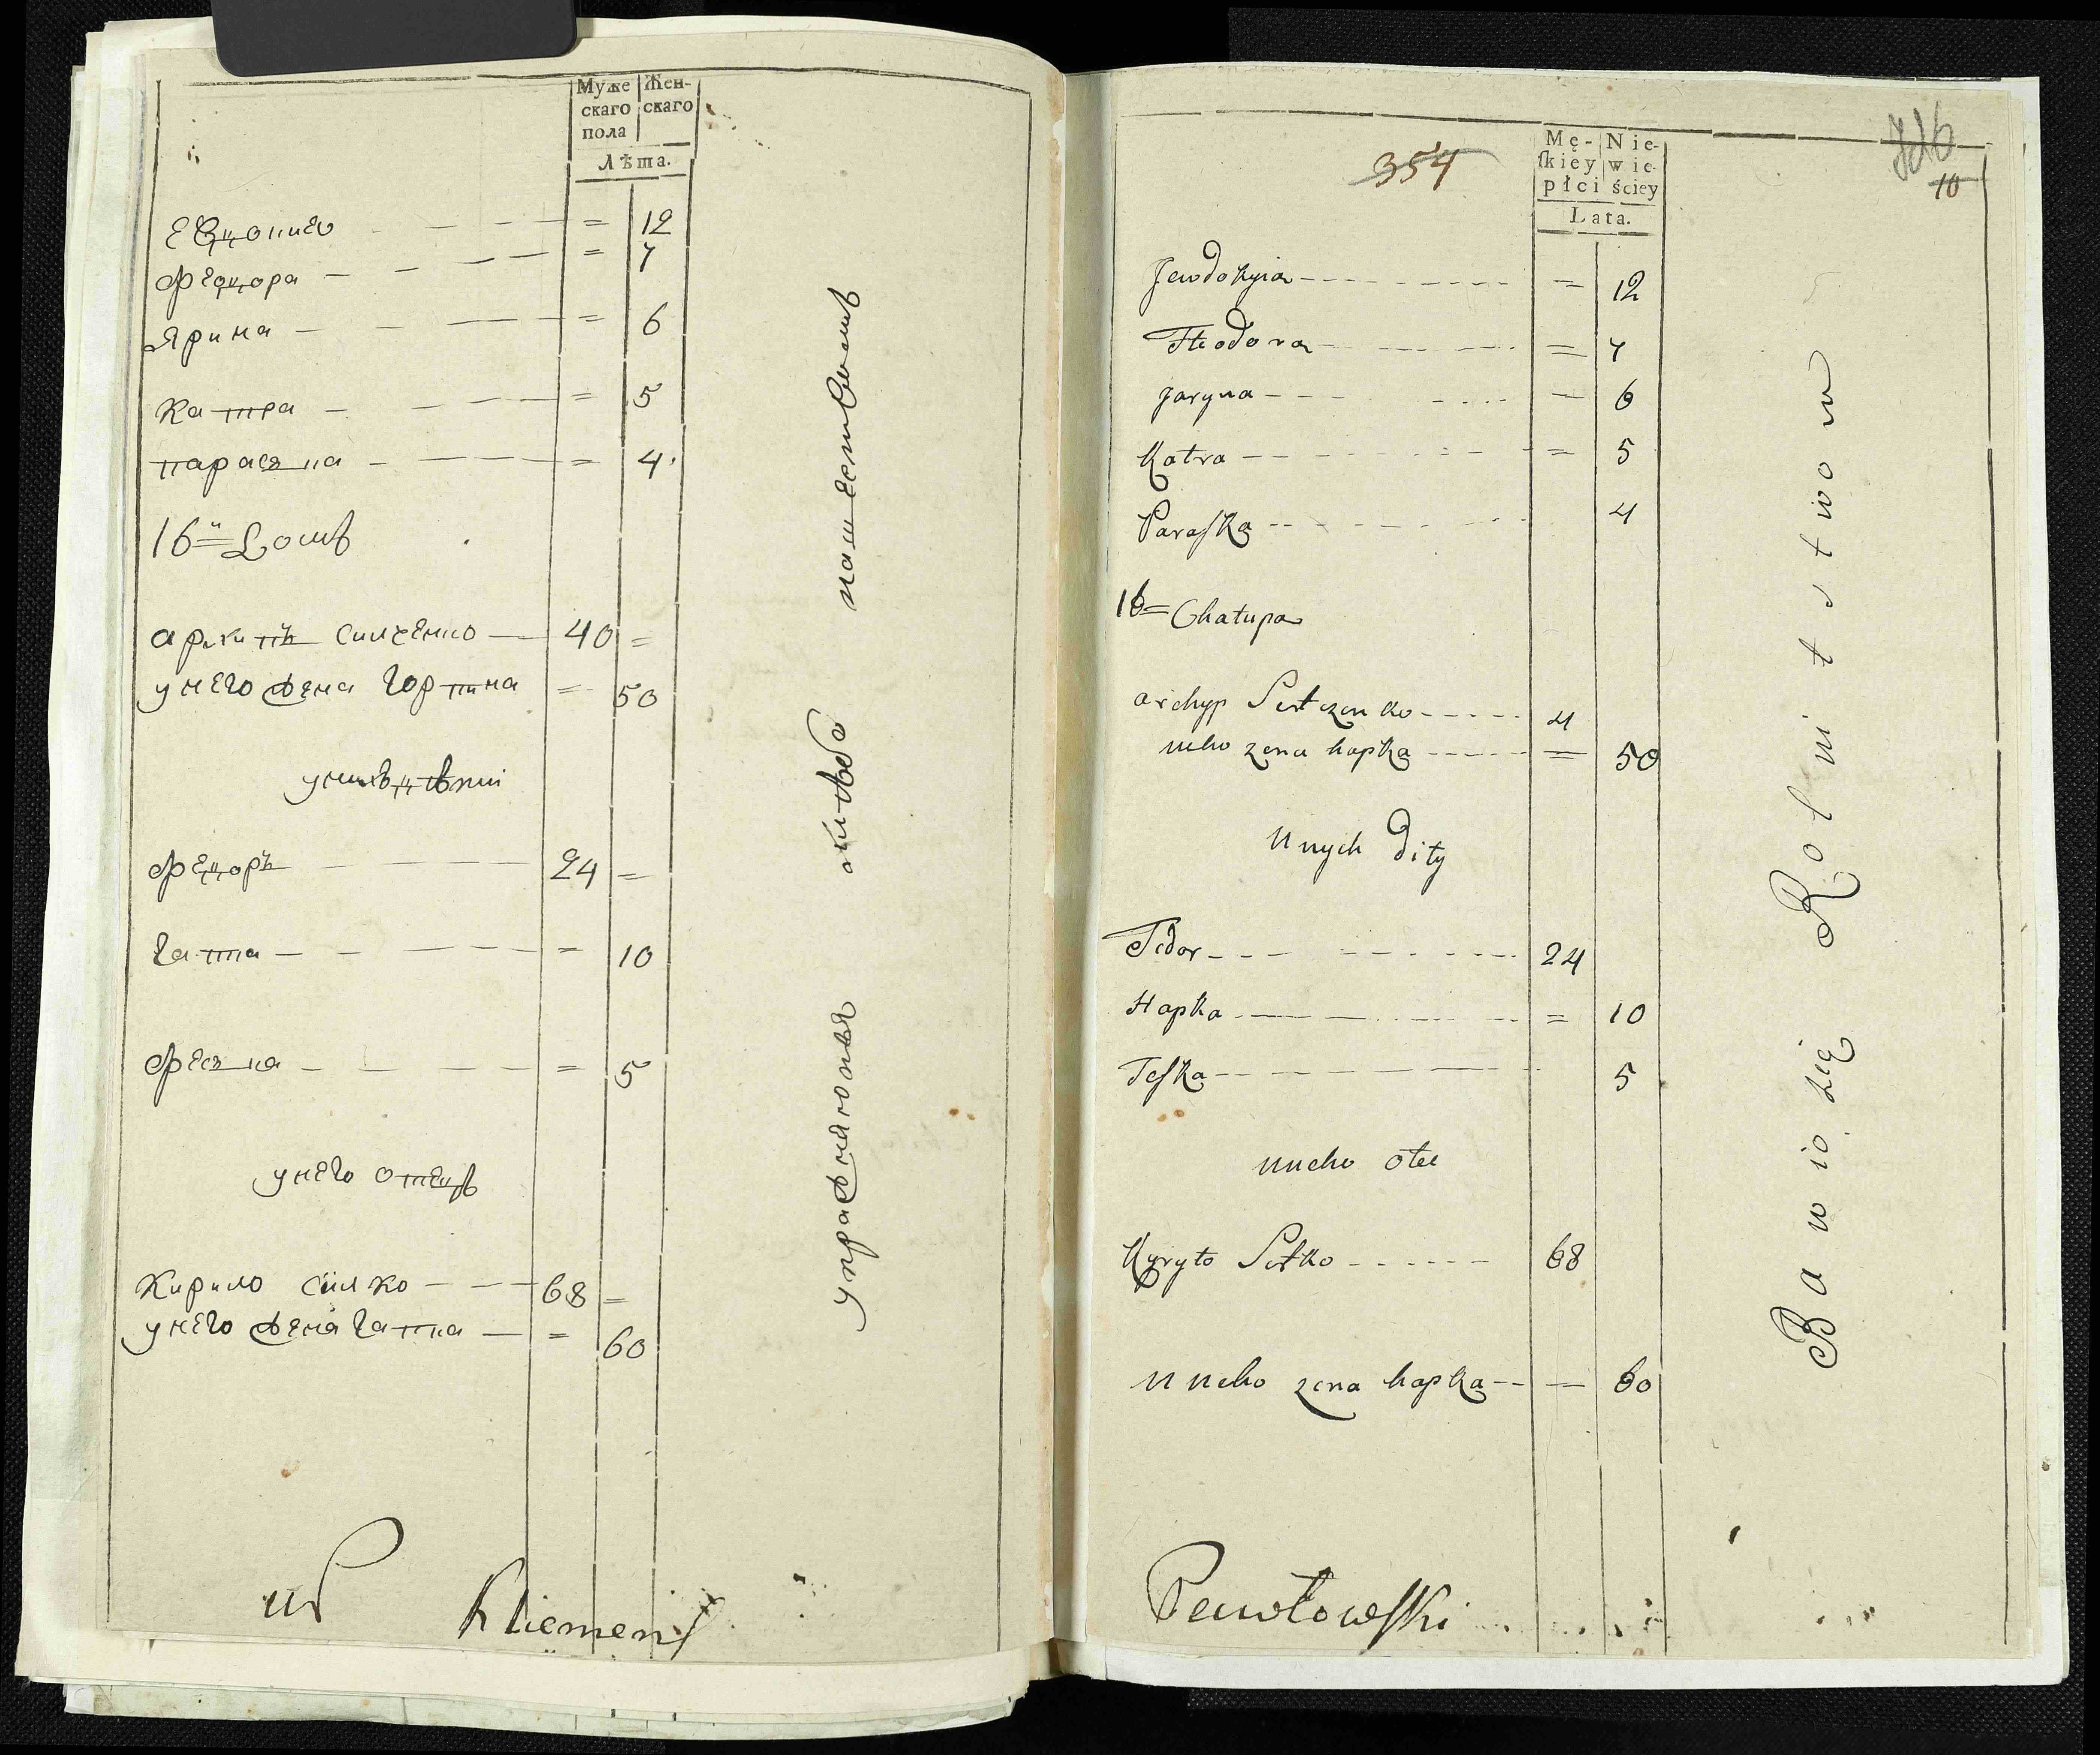 Муже
скаго
пола
Жен-
скаго
Лѣта.
Евдокиѣо = 12
Федора = 7
Ярина = 6
Катра = 5
параска = 4
16 Домъ
архипъ силченко 40 =
у него жена гортина = 50
у нихъ дѣти
Федоръ 24 =
гапка = 10
Феска = 5
у него отецъ
Кирило Силко 68 =
у него жена гапка = 60
упражняются
Kliemens
354
10
Mę-
skiey
płci
Nie-
wie-
ściey
Lata.
Jewdokyia = 12
Theodora = 7
Jaryna = 6
Katra = 5
Paraska 4
16 = Chałupa
archyp Siłczenko 4
uneho zena hapka = 50
U nych dity
Fedor 24
Hapka = 10
Feska 5
uneho otec
Kyryło Siłko 68
U neho zena hapka = 60
Bawią się Rolnitstwow
Pawłowski